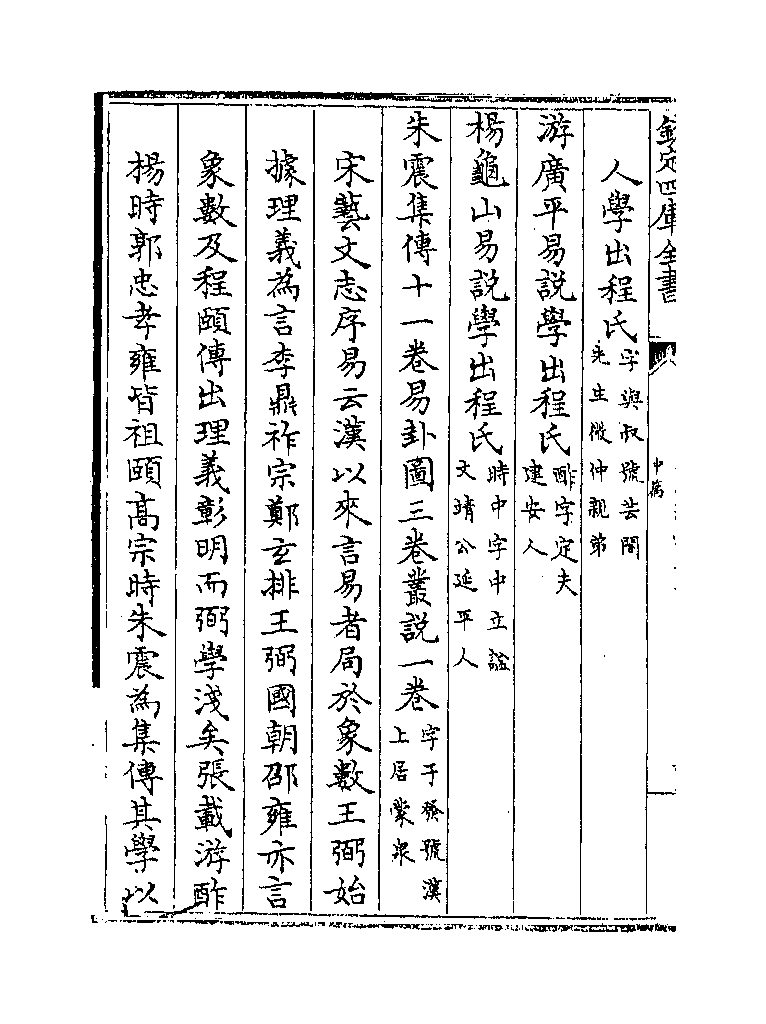 欽定四庫全書
人學出程氏字與叔號芸閣先生微仲親弟
游廣平易說學出程氏酢字定夫建安人
楊龜山易說學出程氏時中字中立諡文靖公延平人
朱震集傳十一卷易卦圖三卷叢說一卷字子發號漢上居蒙泉
宋藝文志序易云漢以來言易者局於象數王弼始
據理義為言李鼎祚宗鄭玄排王弼國朝邵雍亦言
象數及程頤傳出理義彰明而弼學淺矣張載游酢
楊時郭忠孝雍皆祖頤髙宗時朱震為集傳其學以